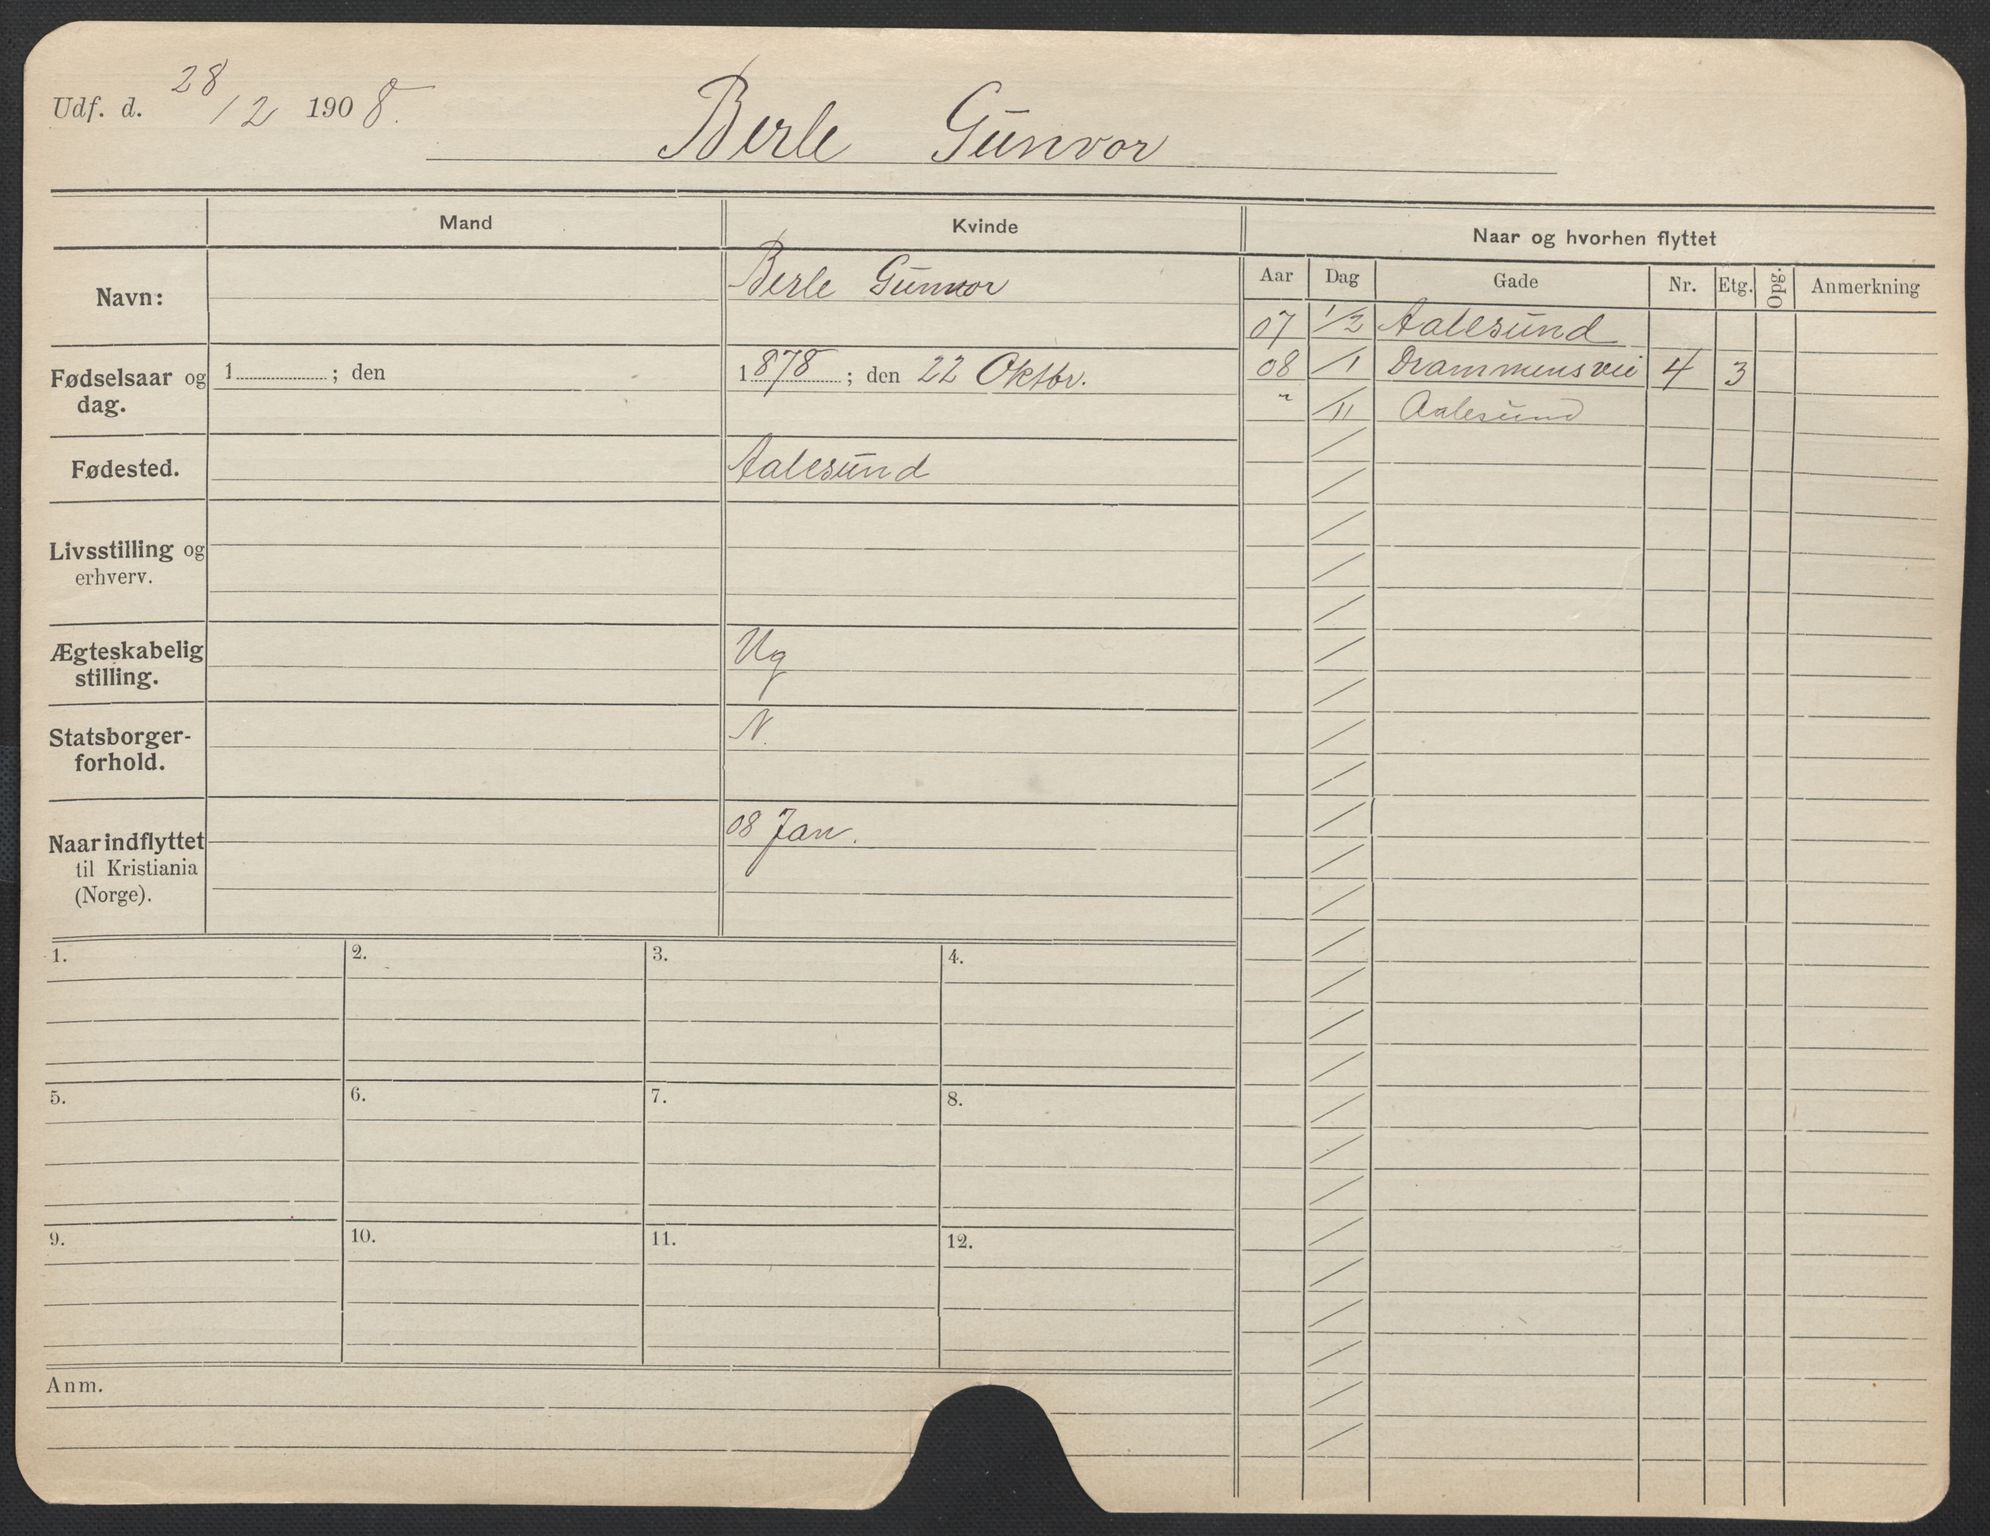 Udf. d. 28/12 1908.
Berle Gunvor
Mand
Kvinde
Naar og hvorhen flyttet
Aar Dag Gade Nr. Etg. Opg. Anmerkning
Navn:
Berle Gunvor
Fødselsaar og
dag.
1 ; den
1878 ; den 22 Oktbr.
Fødested.
Aalesund
Livsstilling og
erhverv.
Ægteskabelig
stilling.
Ug
Statsborger-
forhold.
N.
Naar indflyttet
til Kristiania
(Norge).
08 Jan.
07 1/2 Aalesund
08 /1 Drammensvei 4 3
" /11 Aalesund
1. 2. 3. 4.
5. 6. 7. 8.
9. 10. 11. 12.
Anm.